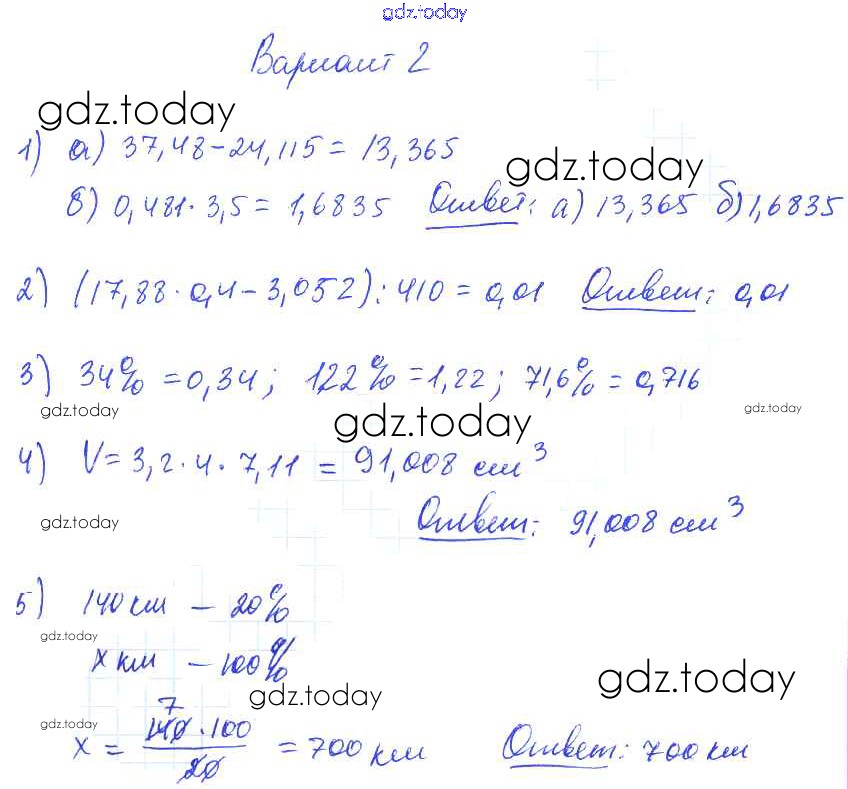 gdz.today
Вариант 2
gdz.today
1) а) 37,48-24,115 = 13,365
gdz.today
б) 0,481 · 3,5 = 1,6835 Ответ: а) 13,365 б) 1,6835
2) (17,88 · 0,4 - 3,052) : 410 = 0,01 Ответ: 0,01
3) 34% = 0,34; 122% = 1,22; 71,6% = 0,716
gdz.today gdz.today gdz.today
4) V = 3,2 · 4 · 7,11 = 91,008 см³
gdz.today
Ответ: 91,008 см³
5) 140 км – 20%
gdz.today
x км – 100%
gdz.today gdz.today
7
gdz.today
x = 140 · 100 / 20 = 700 км Ответ: 700 км